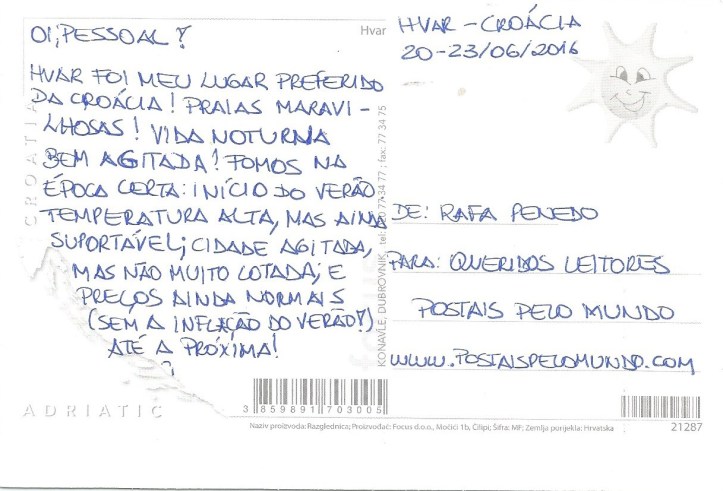 OI, PESSOAL!
HVAR FOI MEU LUGAR PREFERIDO
DA CROÁCIA! PRAIAS MARAVI-
LHOSAS! VIDA NOTURNA
BEM AGITADA! FOMOS NA
ÉPOCA CERTA: INÍCIO DO VERÃO,
TEMPERATURA ALTA, MAS AINDA
SUPORTÁVEL; CIDADE AGITADA,
MAS NÃO MUITO LOTADA; E
PREÇOS AINDA NORMAIS
(SEM A INFLAÇÃO DO VERÃO!)
ATÉ A PRÓXIMA!
Hvar
HVAR - CROÁCIA
20-23/06/2016
DE: RAFA PENEDO
PARA: QUERIDOS LEITORES
POSTAIS PELO MUNDO
WWW.POSTAISPELOMUNDO.COM
CROATIA
ADRIATIC
KONAVLE, DUBROVNIK, tel: 77 34 77; fax: 77 34 75
3 859891 703005
Naziv proizvoda: Razglednica; Proizvođač: Focus d.o.o., Močići 1b, Čilipi; Šifra: MF; Zemlja porijekla: Hrvatska
21287